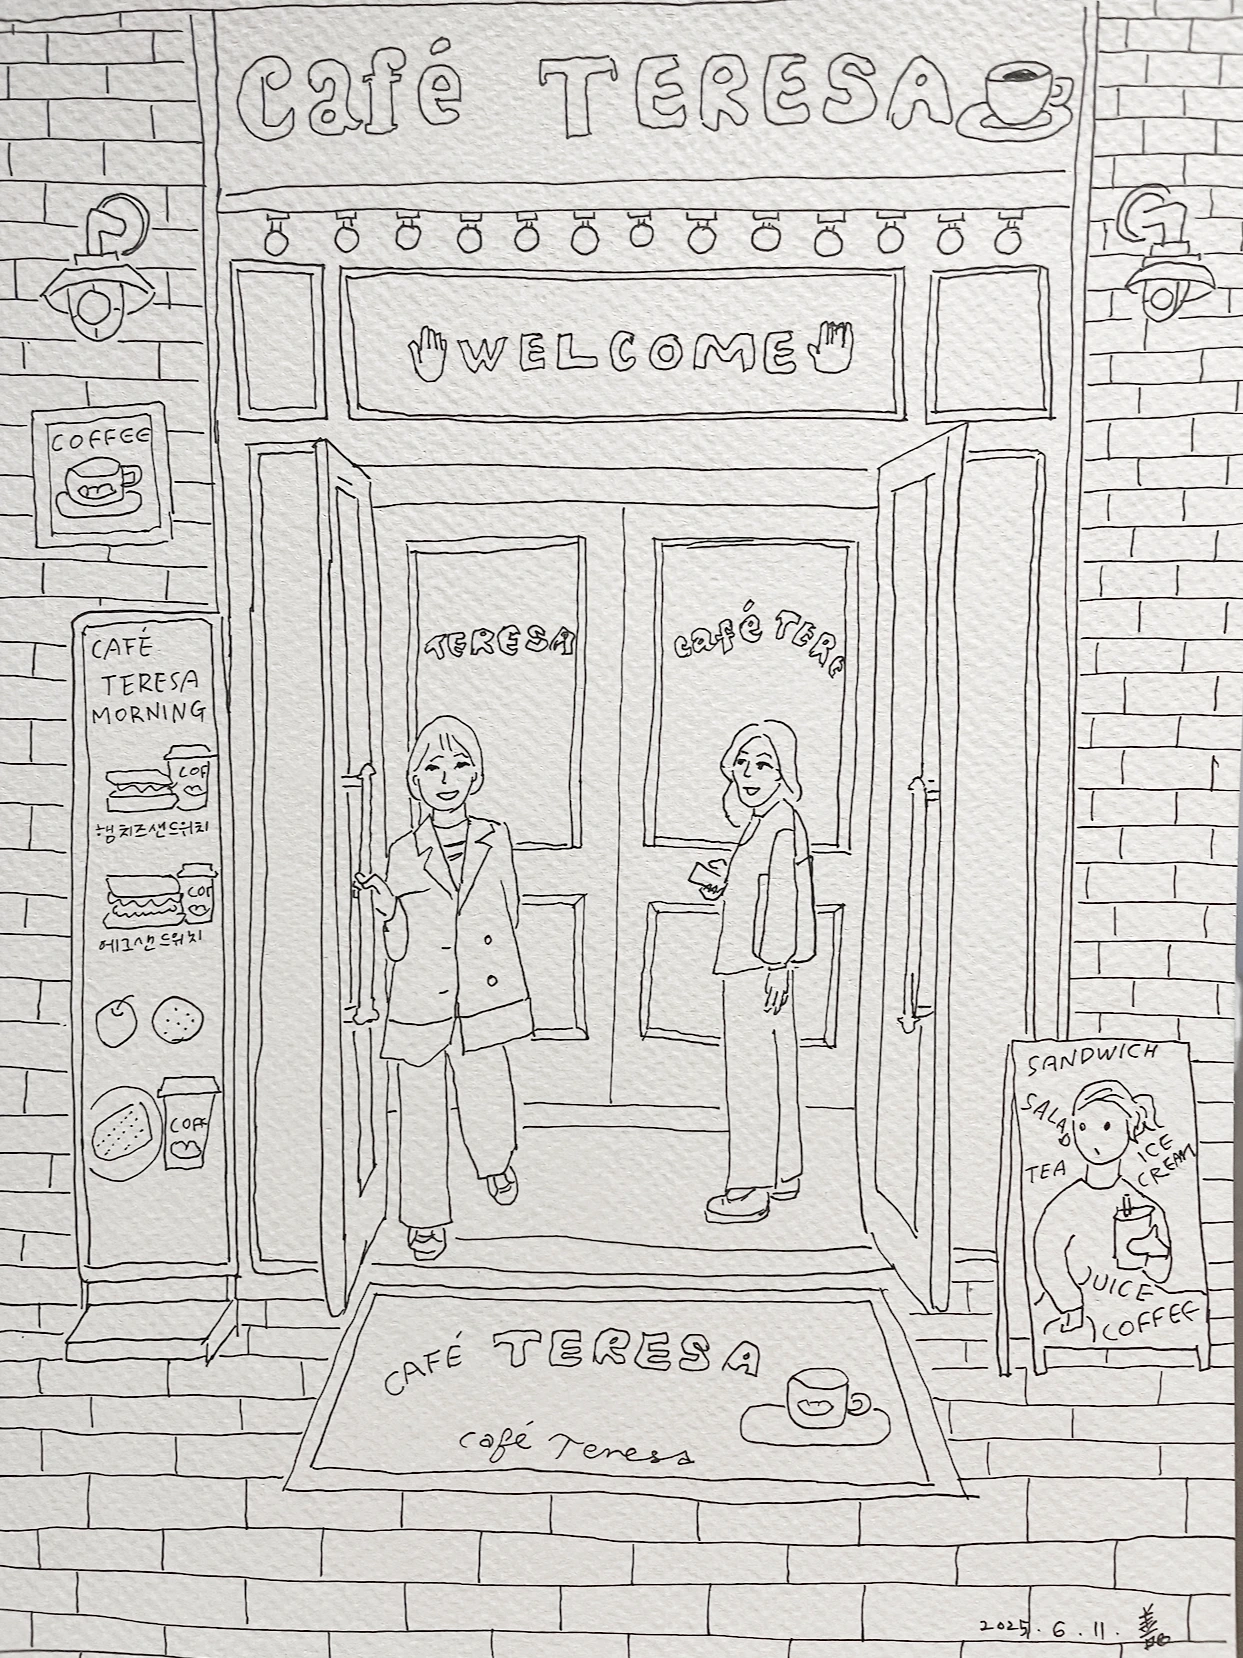 Café TERESA
WELCOME
COFFEE
TERESA
café TERE
CAFÉ
TERESA
MORNING
COF
햄치즈샌드위치
COF
에그샌드위치
COFF
SANDWICH
SALAD
ICE
CREAM
TEA
JUICE
COFFEE
CAFÉ TERESA
café Teresa
2025. 6. 11.